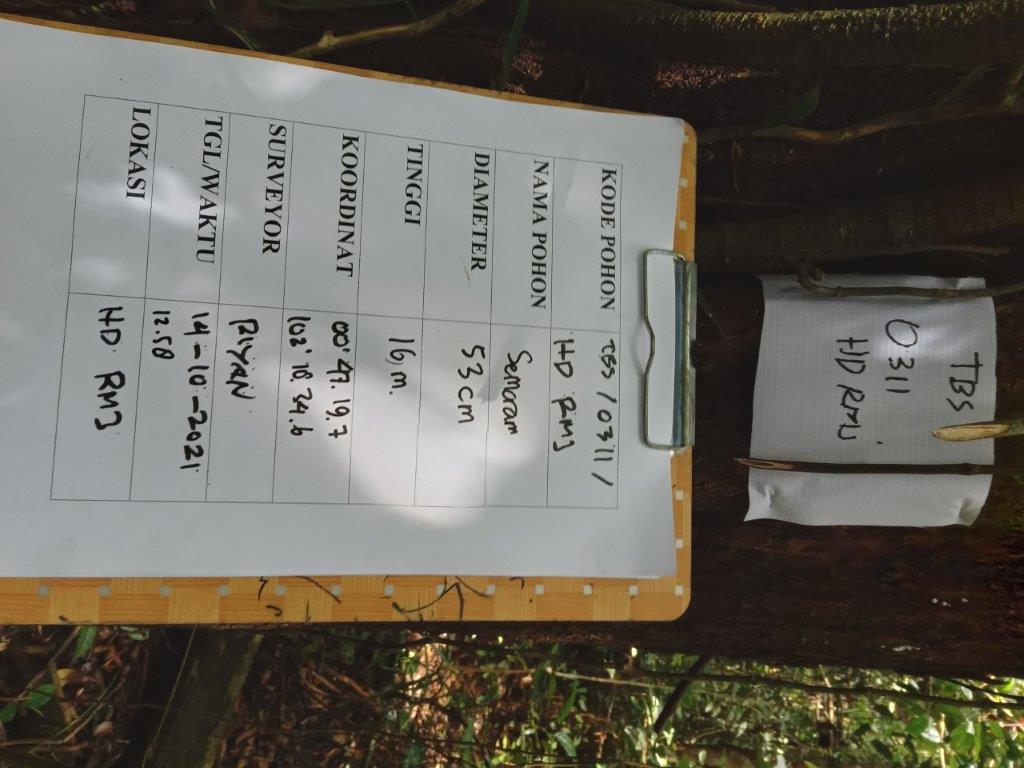 TBS
0311
HD RMJ
KODE POHON TBS / 0311 /
HD RMJ
NAMA POHON Semaram
DIAMETER 53 cm
TINGGI 16 m.
KOORDINAT 00° 47. 19.7
102° 10. 24.6
SURVEYOR RIYAN
TGL/WAKTU 14-10-2021
12.50
LOKASI HD. RMJ